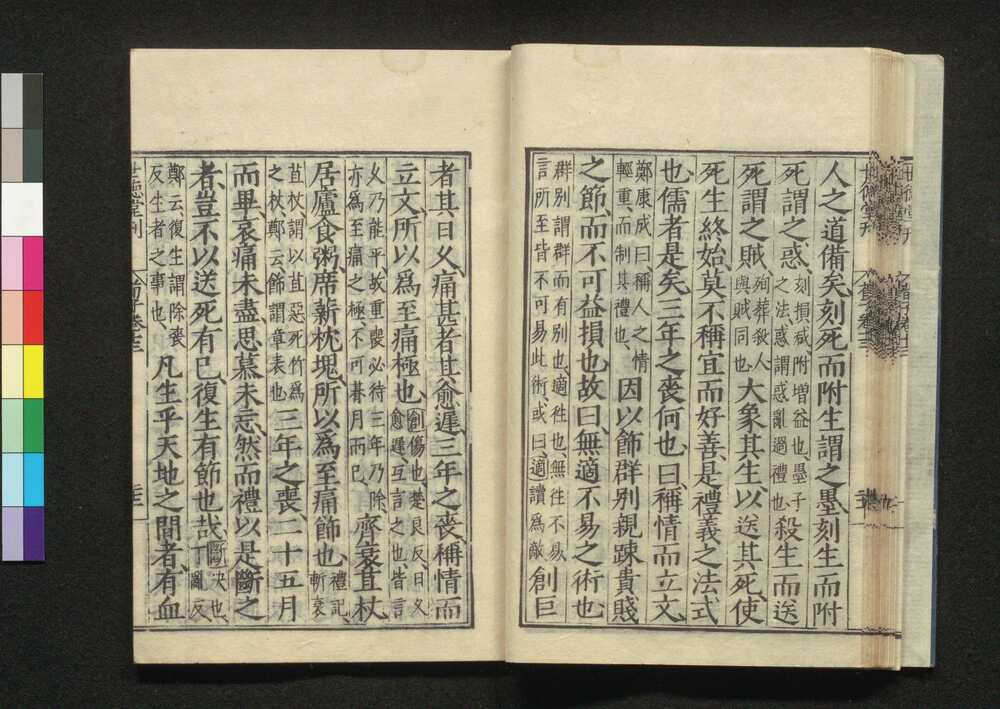 人之道備矣刻死而附生謂之墨刻生而附
死謂之惑刻損减附增益也墨子之法惑謂惑亂過禮也殺生而送
死謂之賊殉葬殺人與賊同也大象其生以送其死使
死生終始莫不稱宜而好善是禮義之法式
也儒者是矣三年之喪何也曰稱情而立文
鄭康成曰稱人之情輕重而制其禮也因以飾群別親踈貴賤
之節而不可益損也故曰無適不易之術也
群別謂群而有別也適往也無往不易言所至皆不可易此術或曰適讀爲敵創巨
者其日久痛甚者其愈遲三年之喪稱情而
立文所以爲至痛極也創傷也楚良反日久愈遲互言之也皆言
久乃能平故重喪必待三年乃除亦爲至痛之極不可朞月而已齊衰苴杖
居廬食粥席薪枕塊所以爲至痛飾也禮記斬衰
苴杖謂以苴惡死竹爲之杖鄭云飾謂章表也三年之喪二十五月
而畢哀痛未盡思慕未忘然而禮以是斷之
者豈不以送死有已復生有節也哉斷決也丁亂反
鄭云復生謂除喪反生者之事也凡生乎天地之間者有血
世德堂刊